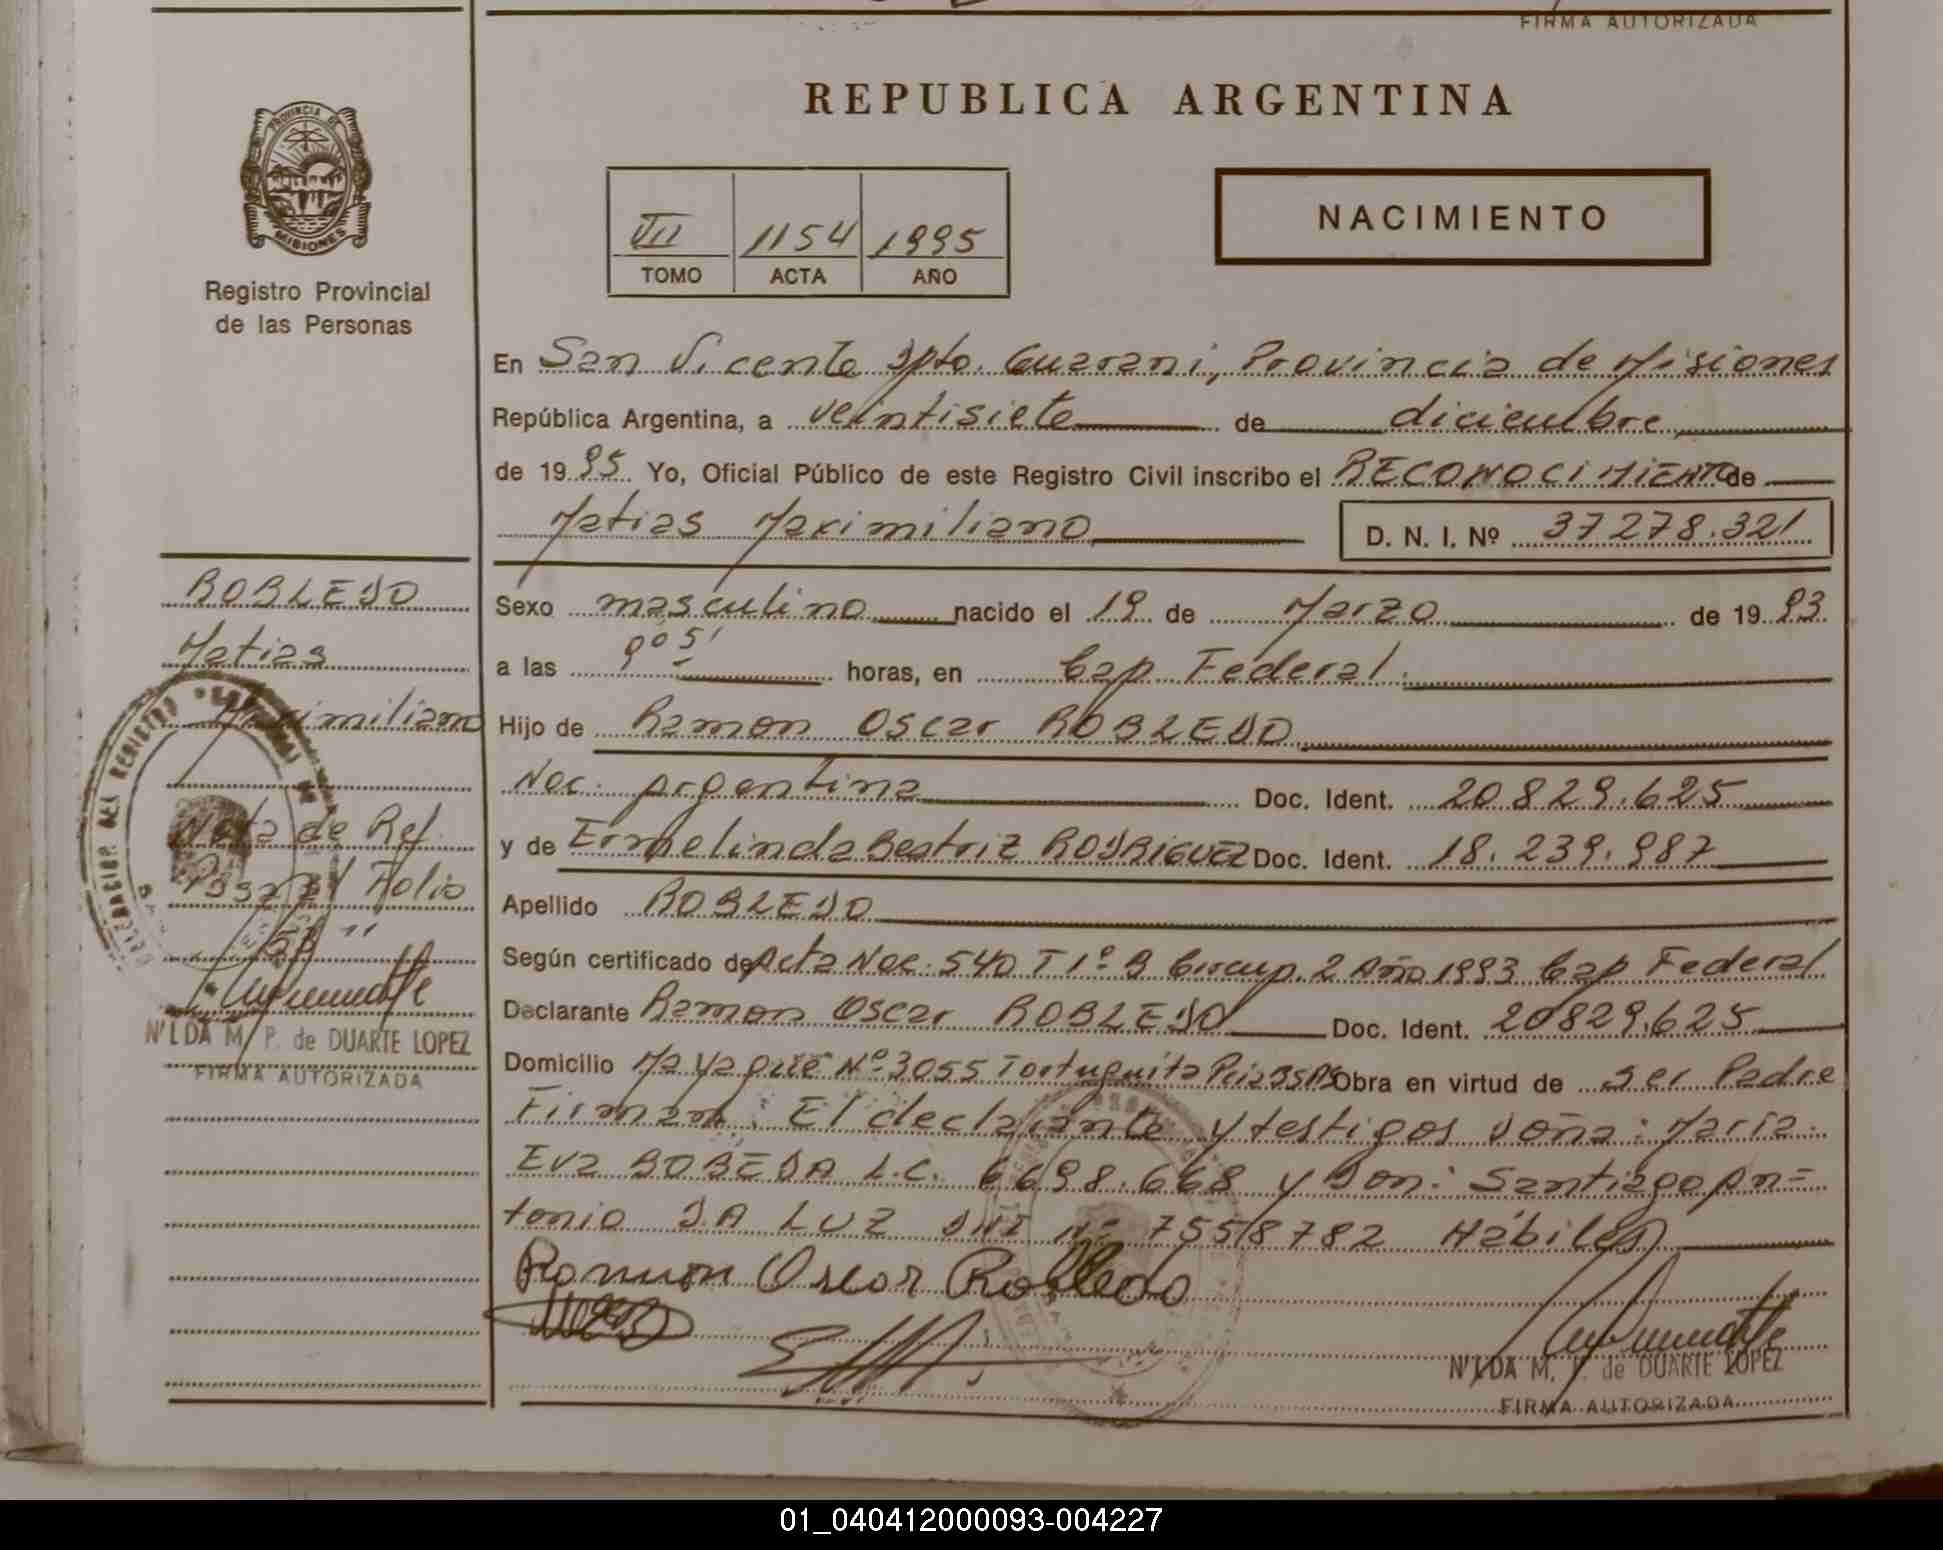 FIRMA AUTORIZADA
REPUBLICA ARGENTINA
PROVINCIA DE
MISIONES
Registro Provincial
de las Personas
VII 1154 1995
TOMO ACTA AÑO
NACIMIENTO
En San Vicente Dpto. Guarani, Provincia de Misiones
República Argentina, a veintisiete de diciembre
de 1995 Yo, Oficial Público de este Registro Civil inscribo el RECONOCIMIENTO de
Matias Maximiliano D. N. I. Nº 37278.321
Sexo masculino nacido el 19 de Marzo de 1993
a las 9º 5' horas, en Cap Federal.
Hijo de Ramon Oscar ROBLEDO
Nac. Argentina Doc. Ident. 20829.625
y de Ermelinda Beatriz RODRIGUEZ Doc. Ident. 18.239.987
Apellido ROBLEDO
Según certificado de Acta Nac. 540 T 1º B Circup. 2 Año 1993 Cap Federal
Declarante Ramon Oscar ROBLEDO Doc. Ident. 20829.625
Domicilio Nº 3055 Tortuguita Pcia BsAs Obra en virtud de ser Padre
Firman: El declarante y testigos Doña: María
Eva BOBEDA L.C. 6698.668 y Don: Santiago An=
tonio DA LUZ DNI Nº 7558782 Hábiles
Ramon Oscar Robledo
N'LDA M. P. de DUARTE LOPEZ
FIRMA AUTORIZADA
ROBLEDO
Matias
Maximiliano
Nota de Ref.
Folio
N'LDA M. P. de DUARTE LOPEZ
FIRMA AUTORIZADA
01_040412000093-004227